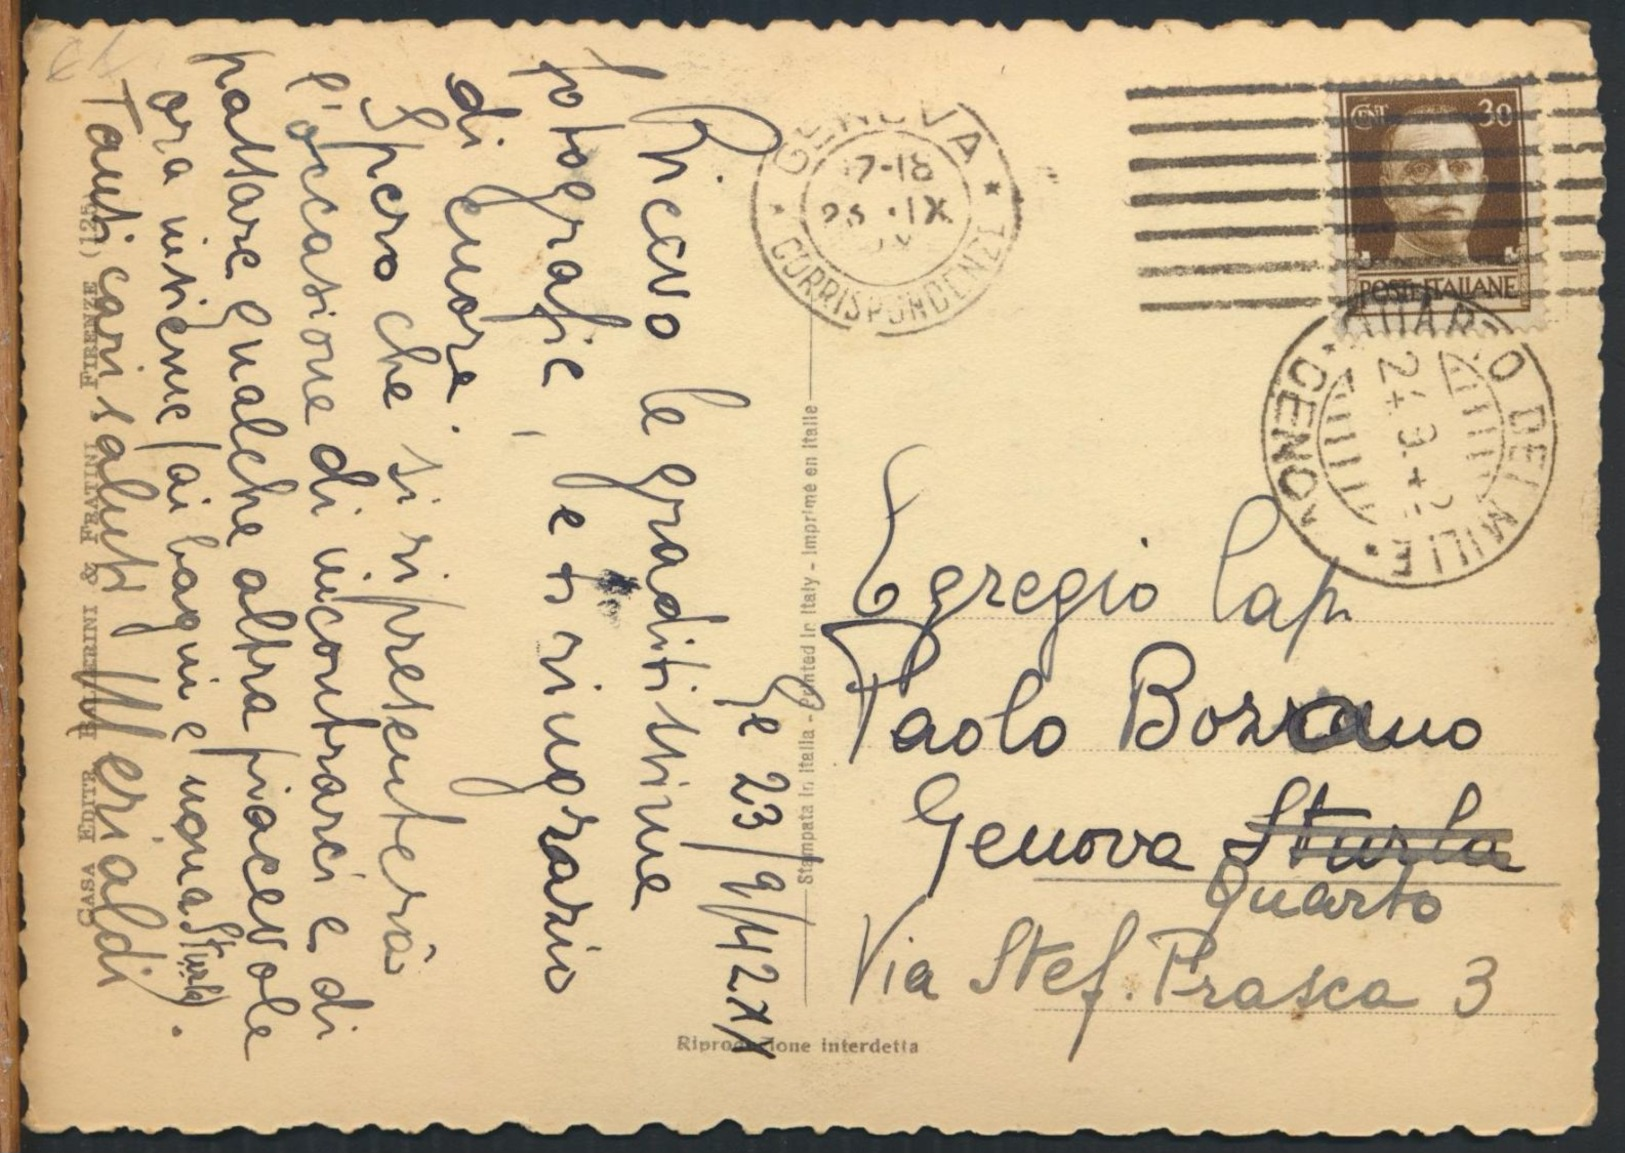 Ge 23/9/42 XX
Ricevo le graditissime
fotografie, e ti ringrazio
di cuore.
Spero che si ripresenterà
l'occasione di incontrarci e di
passare qualche altra piacevole
ora insieme (ai bagni e nona Sturla).
Tanti cari saluti Merialdi
CASA EDITR BALLERINI & FRATINI FIRENZE (125)
Stampata in Italia - Printed in Italy - Imprimé en Italie
Riproduzione interdetta
GENOVA
17-18
23 . IX
CORRISPONDENZE
CENT 30
POSTE ITALIANE
QUARTO DEI MILLE
24.9.42
GENOVA
Egregio Cap.
Paolo Bozzano
Genova Sturla
Quarto
Via Stef. Prasca 3